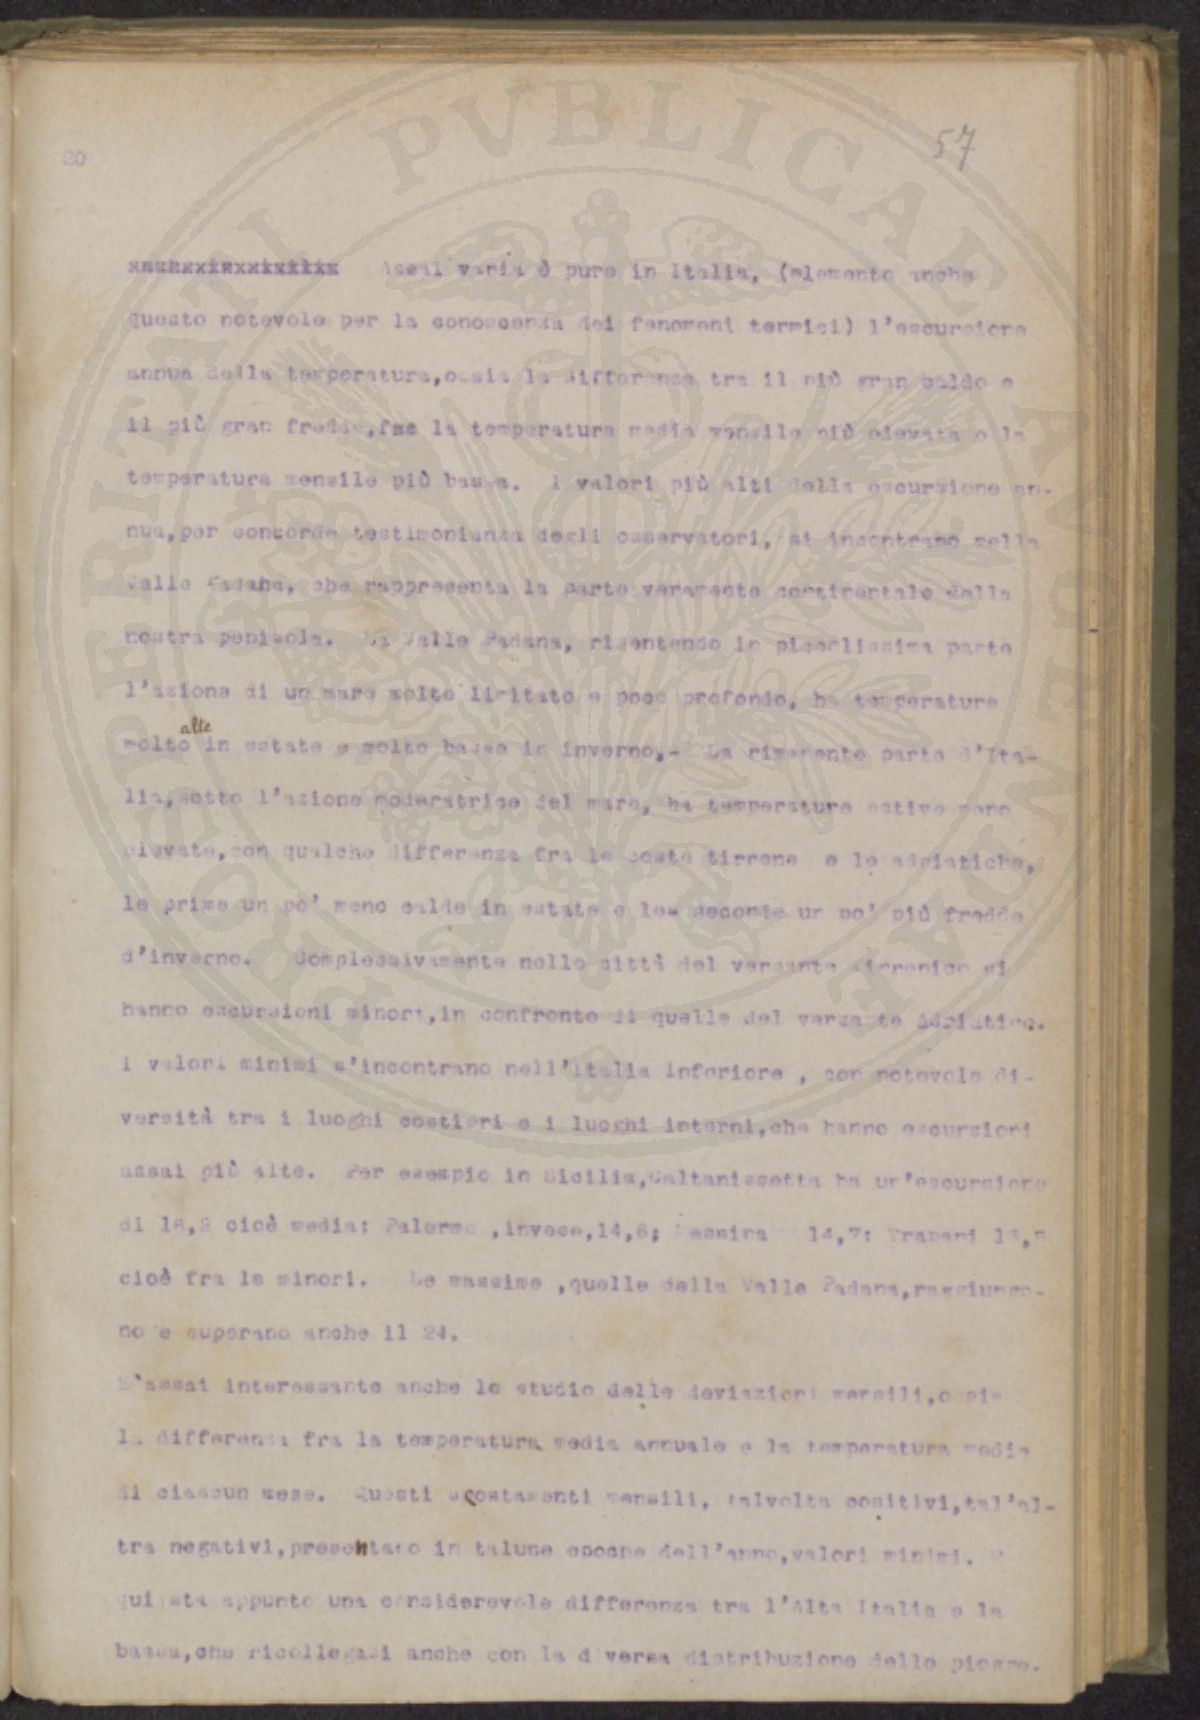 57
80
Assai varia è pure in Italia, (elemento anche
questo notevole per la conoscenza dei fenomeni termici) l'escursione
annua della temperatura,ossia la differenza tra il più gran caldo e
il più gran freddo, la temperatura media mensile più elevata e la
temperatura mensile più bassa. I valori più alti della escursione an-
nua,per concorde testimonianza degli osservatori, si incontrano nella
Valle Padana, che rappresenta la parte veramente continentale della
nostra penisola. La Valle Padana, risentendo in piccolissima parte
l'azione di un mare molto limitato e poco profondo, ha temperature
alte
molto in estate e molto basse in inverno,- La rimanente parte d'Ita-
lia,sotto l'azione moderatrice del mare, ha temperature estive meno
elevate,con qualche differenza fra le coste tirrene e le adriatiche,
le prime un po' meno calde in estate e le seconde un po' più fredde
d'inverno. Complessivamente nelle città del versante tirrenico si
hanno escursioni minori,in confronto di quelle del versante Adriatico.
I valori minimi s'incontrano nell'Italia Inferiore , con notevole di-
versità tra i luoghi costieri e i luoghi interni,che hanno escursioni
assai più alte. Per esempio in Sicilia,Caltanissetta ha un'escursione
di 18,2 cioè media: Palermo ,invece,14,6; Messina 14,7: Trapani
cioè fra le minori. Le massime ,quelle della Valle Padana,raggiungo-
no e superano anche il 24.
E'assai interessante anche lo studio delle deviazioni mensili,ossia
la differenza fra la temperatura media annuale e la temperatura media
di ciascun mese. Questi scostamenti mensili, talvolta positivi,tal'al-
tra negativi,presentano in talune epoche dell'anno,valori minimi. E
qui sta appunto una considerevole differenza tra l'Alta Italia e la
bassa,che ricollegasi anche con la diversa distribuzione delle piogge.
BVLICAE PROSPERITATI PVBLICAE AVGENDAE